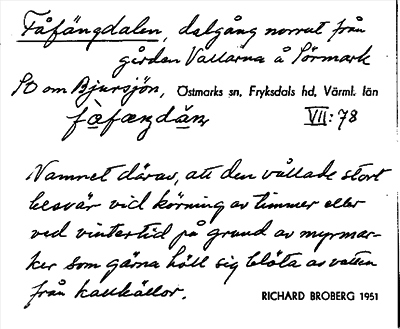 Fåfängdalen, dalgång norrut från
gården Vallarna å Sörmark
SO om Bjursjön, Östmarks sn, Fryksdals hd, Värml. län
VII: 78
Namnet därav, att den vållade stort
besvär vid körning av timmer eller
ved vintertid på grund av myrmar-
ker som gärna höll sig blöta av vatten
från kallkällor.
RICHARD BROBERG 1951